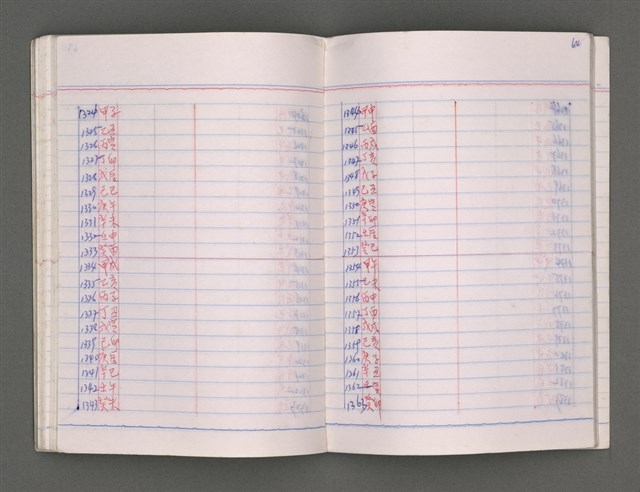 1324 甲子
1325 乙丑
1326 丙寅
1327 丁卯
1328 戊辰
1329 己巳
1330 庚午
1331 辛未
1332 壬申
1333 癸酉
1334 甲戌
1335 乙亥
1336 丙子
1337 丁丑
1338 戊寅
1339 己卯
1340 庚辰
1341 辛巳
1342 壬午
1343 癸未
1344 甲申
1345 乙酉
1346 丙戌
1347 丁亥
1348 戊子
1349 己丑
1350 庚寅
1351 辛卯
1352 壬辰
1353 癸巳
1354 甲午
1355 乙未
1356 丙申
1357 丁酉
1358 戊戌
1359 己亥
1360 庚子
1361 辛丑
1362 壬寅
1363 癸卯